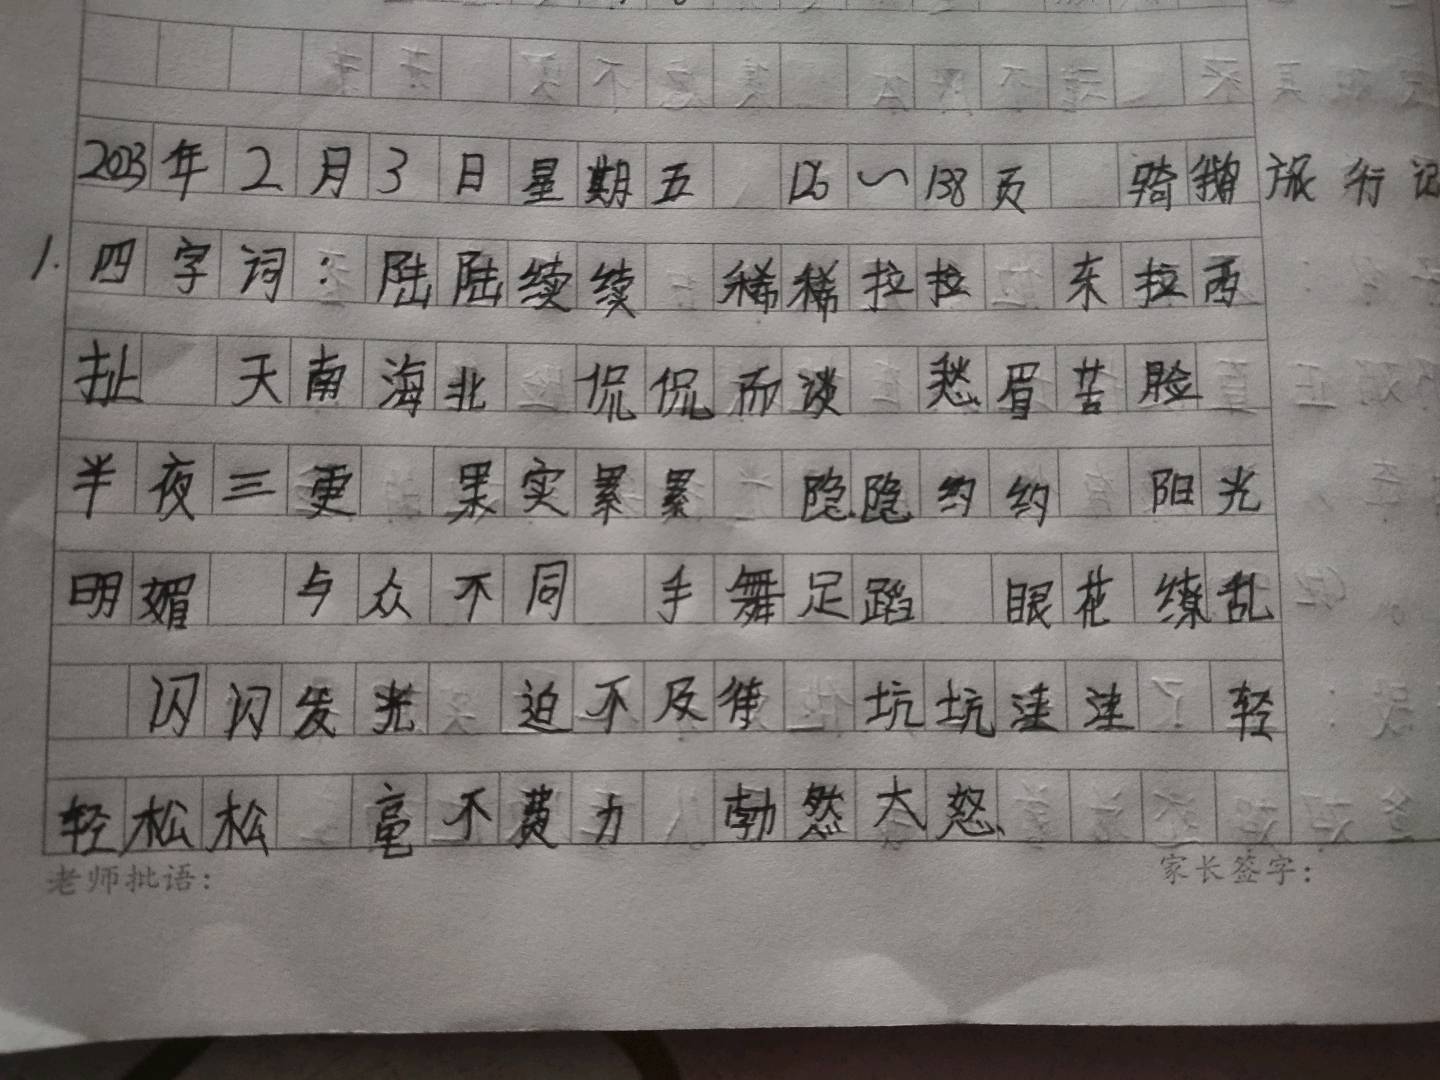 2023年2月3日星期五 126～138页 骑鹅旅行记
1.四字词：陆陆续续 稀稀拉拉 东拉西
扯 天南海北 侃侃而谈 愁眉苦脸
半夜三更 果实累累 隐隐约约 阳光
明媚 与众不同 手舞足蹈 眼花缭乱
闪闪发光 迫不及待 坑坑洼洼 轻
轻松松 毫不费力 勃然大怒
老师批语： 家长签字：